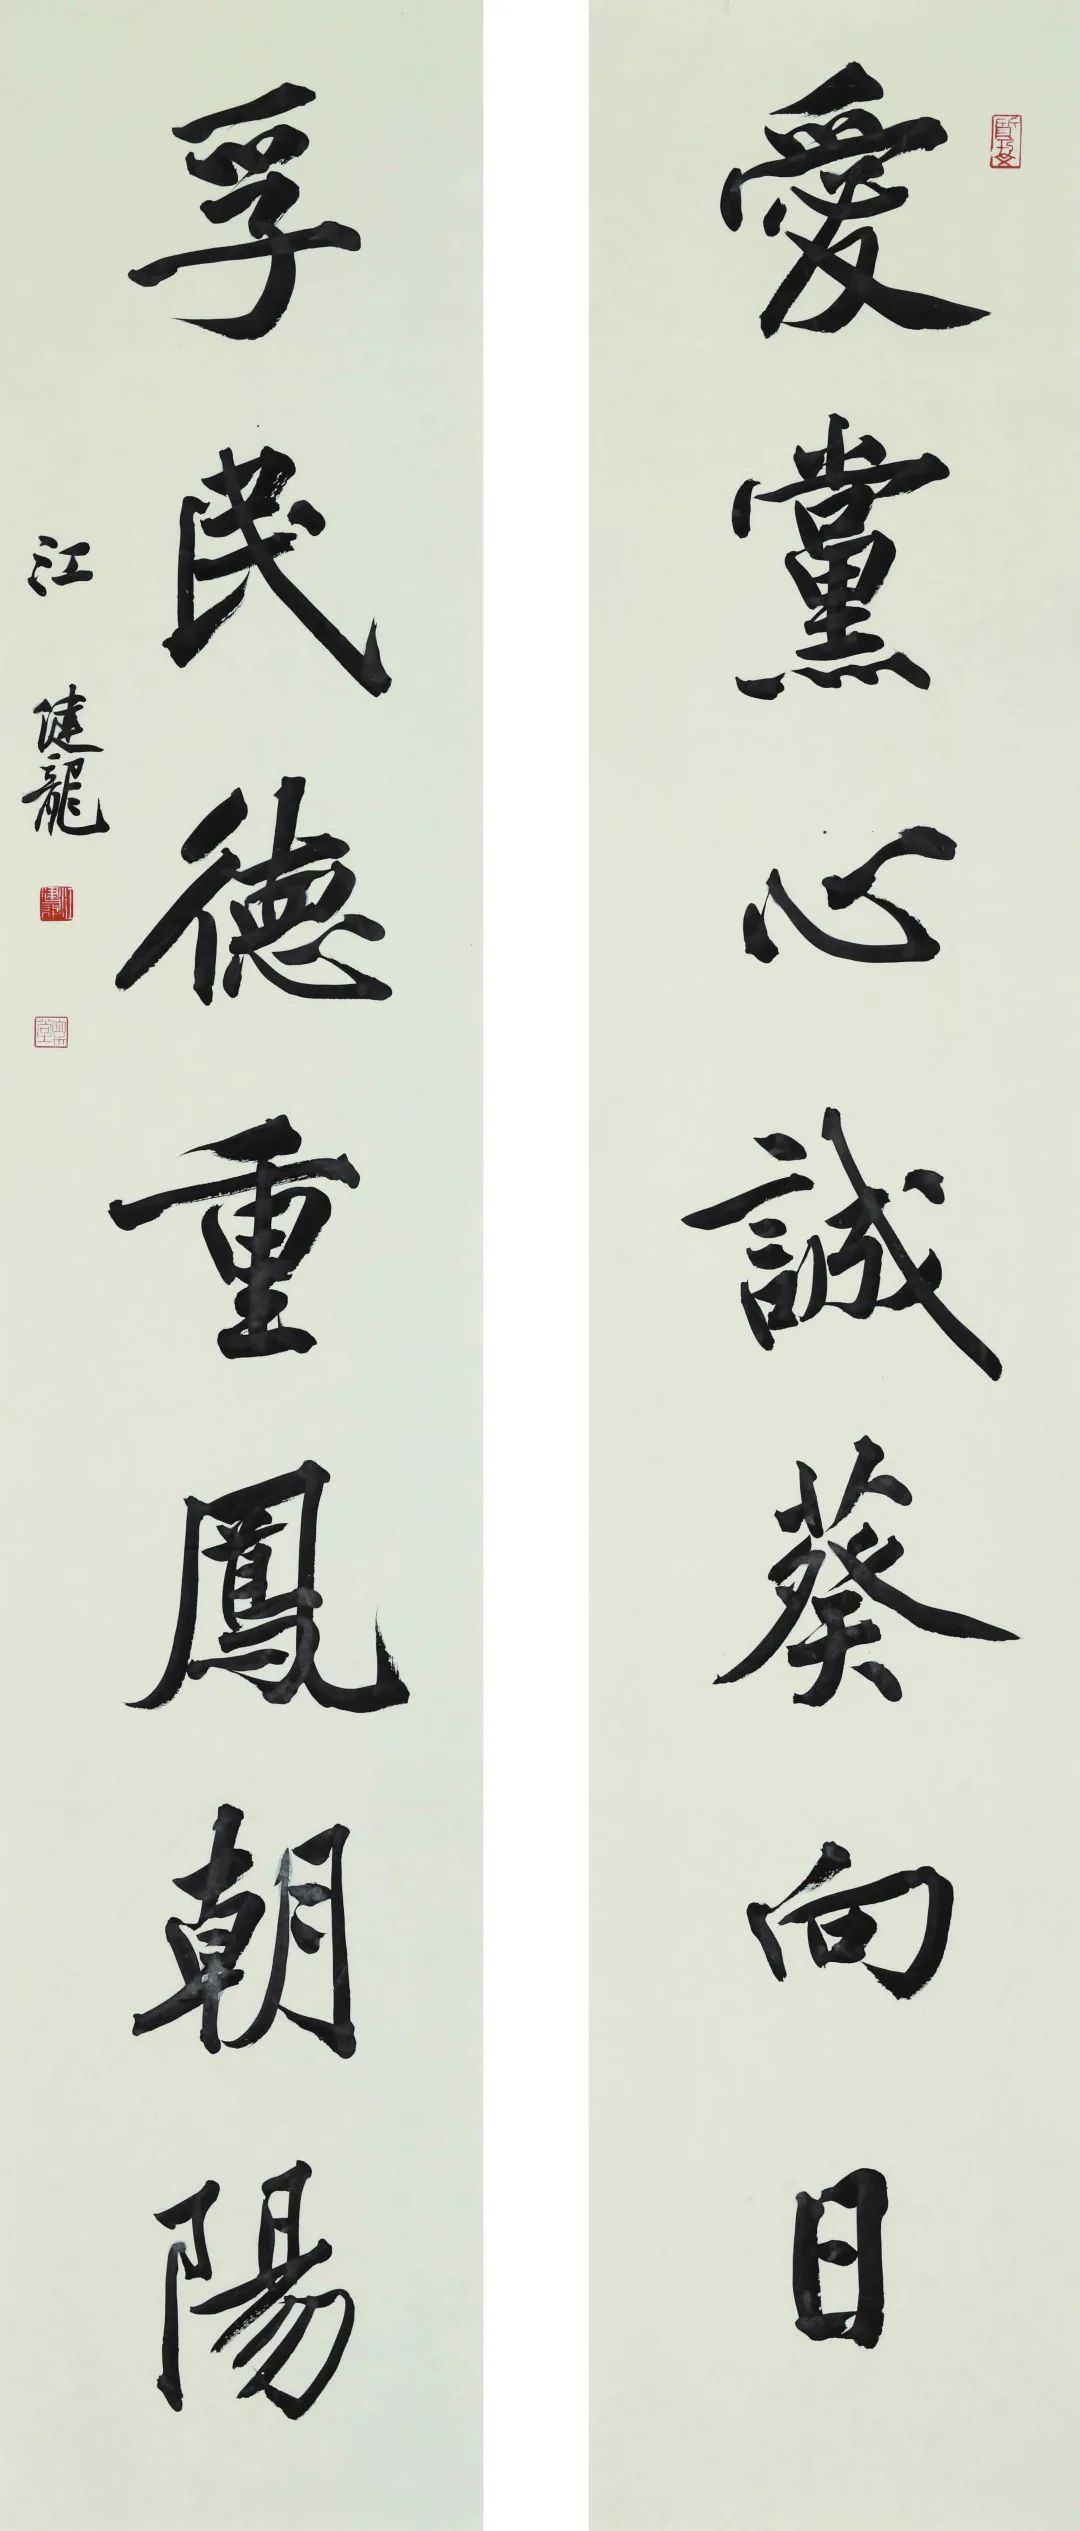 愛黨心誠葵向日
孚民德重鳳朝陽
江健龍